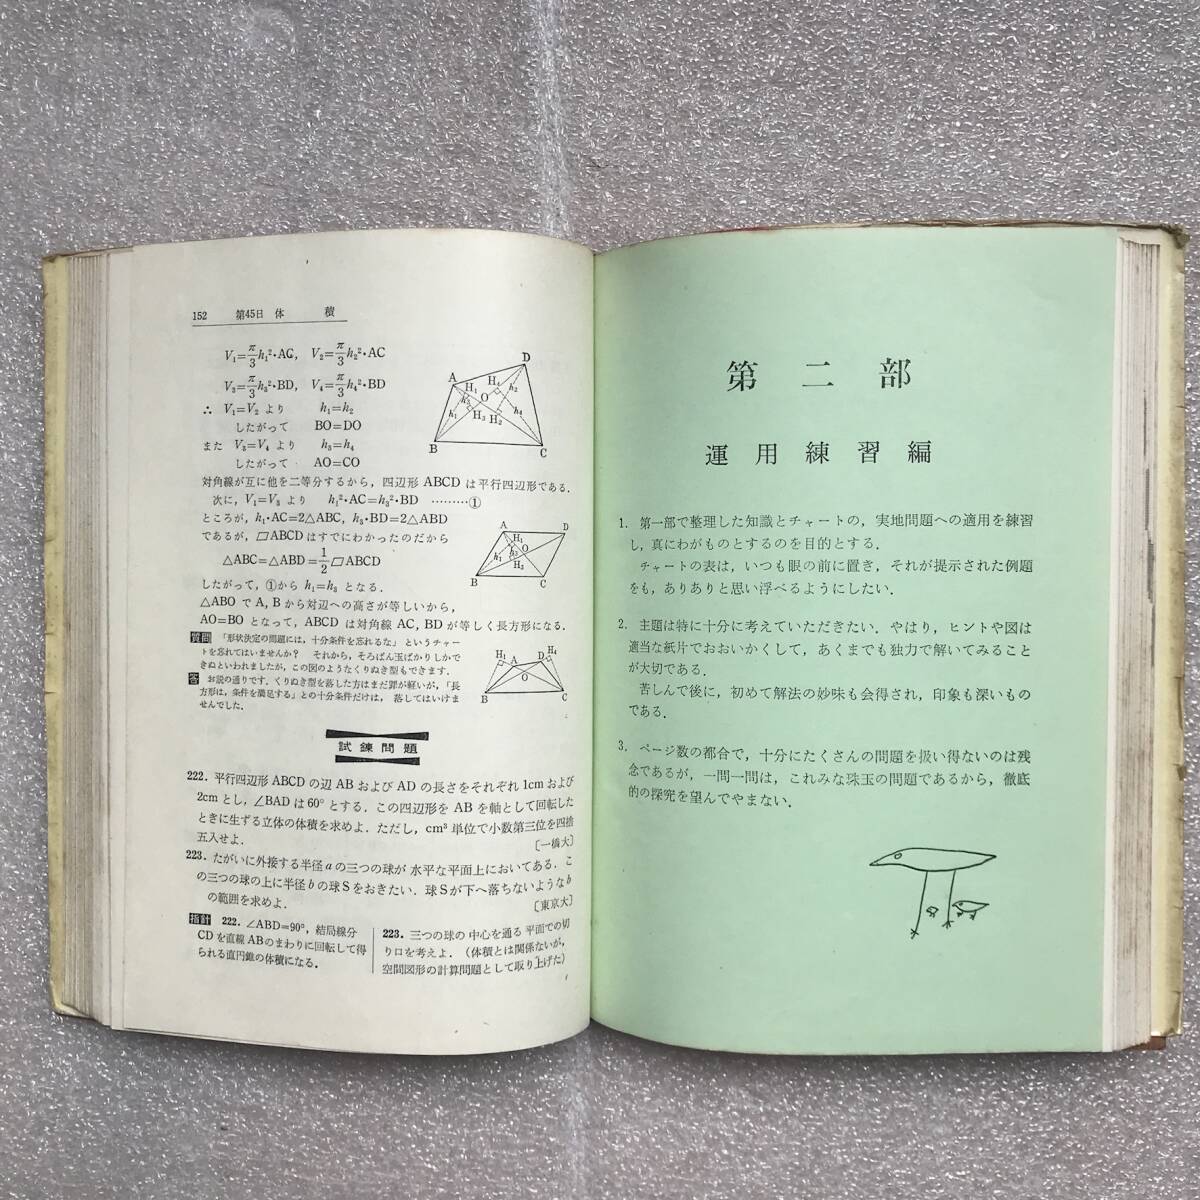 152 第45日 体 積
V₁=π/3 h₁²•AC, V₂=π/3 h₂²•AC
V₃=π/3 h₃²•BD, V₄=π/3 h₄²•BD
∴ V₁=V₂ より h₁=h₂
したがって BO=DO
また V₃=V₄ より h₃=h₄
したがって AO=CO
対角線が互に他を二等分するから，四辺形 ABCD は平行四辺形である．
次に，V₁=V₃ より h₁²•AC=h₃²•BD ………①
ところが，h₁•AC=2△ABC, h₃•BD=2△ABD
であるが，▱ABCD はすでにわかったのだから
△ABC=△ABD=1/2 ▱ABCD
したがって，①から h₁=h₃ となる．
△ABO で A, B から対辺への高さが等しいから，
AO=BO となって，ABCD は対角線 AC, BD が等しく長方形になる．
質問 「形状決定の問題には，十分条件を忘れるな」というチャー
トを忘れてはいませんか？ それから，そろばん玉ばかりしかで
きぬといわれましたが，この図のようなくりぬき型もできます．
答 お説の通りです．くりぬき型を落した方はまだ罪が軽いが，「長
方形は，条件を満足する」との十分条件だけは，落してはいけま
せんでした．
A D H₁ H₄ O h₂ h₃ h₁ H₃ H₂ h₄ B C
A D H₁ O h₁ h₃ H₂ B C
H₁ A D H₄ O B C
試錬問題
222．平行四辺形 ABCD の辺 AB および AD の長さをそれぞれ 1cm および
2cm とし，∠BAD は 60° とする．この四辺形を AB を軸として回転した
ときに生ずる立体の体積を求めよ．ただし，cm³ 単位で小数第三位を四捨
五入せよ． 〔一橋大〕
223．たがいに外接する半径 a の三つの球が 水平な平面上においてある．こ
の三つの球の上に半径 b の球 S をおきたい．球 S が下へ落ちないような b
の範囲を求めよ． 〔東京大〕
指針 222．∠ABD=90°，結局線分
CD を直線 AB のまわりに回転して得
られる直円錐の体積になる．
223．三つの球の 中心を通る 平面での切
り口を考えよ．（体積とは関係ないが，
空間図形の計算問題として取り上げた）
第二部
運用練習編
1．第一部で整理した知識とチャートの，実地問題への適用を練習
し，真にわがものとするのを目的とする．
チャートの表は，いつも眼の前に置き，それが提示された例題
をも，ありありと思い浮べるようにしたい．
2．主題は特に十分に考えていただきたい．やはり，ヒントや図は
適当な紙片でおおいかくして，あくまでも独力で解いてみること
が大切である．
苦しんで後に，初めて解法の妙味も会得され，印象も深いもの
である．
3．ページ数の都合で，十分にたくさんの問題を扱い得ないのは残
念であるが，一問一問は，これみな珠玉の問題であるから，徹底
的の探究を望んでやまない．